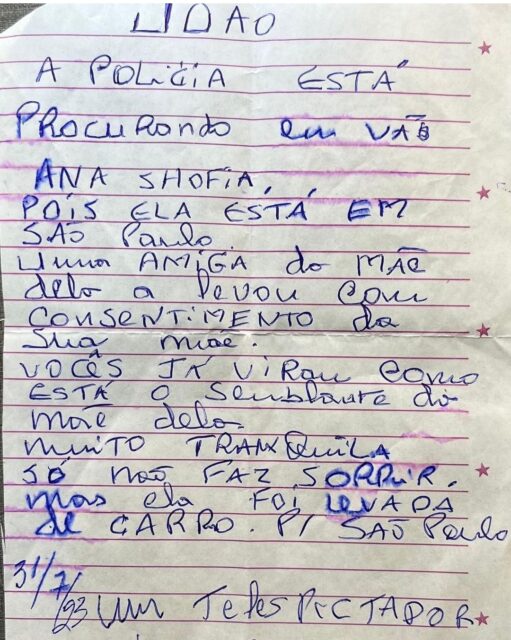 A POLICIA ESTÁ
PROCURANDO em VÃO
ANA SHOFIA,
POIS ELA ESTÁ EM
SÃO Paulo.
Uma AMIGA da MÃE
dela a levou com
CONSENTIMENTO da
sua mãe.
VOCÊS JÁ VIRAM como
ESTÁ O Semblante da
mãe dela
muito TRANQUILA
SÓ não FAZ SORRIR.
mas ela FOI LEVADA
de CARRO. P/ SÃO Paulo
31/7/23 um TelesPECTADOR